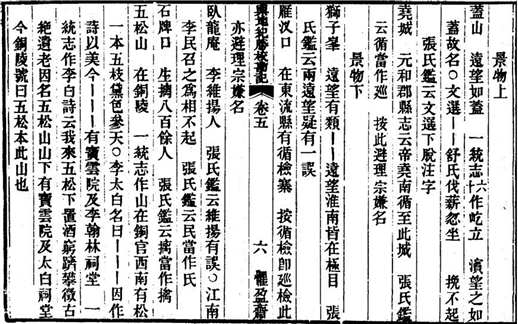 景物上
蓋山　遠望如蓋　一統志六十作屹立　濵望之如
蓋故名○文選｜｜舒氏伐薪忽坐　挽不起
張氏鑑云文選下脫注字
堯城　元和郡縣志云帝堯南循至此城　張氏鑑
云循當作巡　按此避理宗嫌名
景物下
獅子峯　遠望有類｜｜遠望淮南皆在極目　張
氏鑑云兩遠望疑有一誤
雁汊口　在東流縣有循檢寨　按循檢卽巡檢此
輿地紀勝校勘記　卷五　六　懼盈齋
亦避理宗嫌名
臥龍庵　李維揚人　張氏鑑云維揚有誤○江南
李民召之爲相不起　張氏鑑云民當作氏
石牌口　生摛八百餘人　張氏鑑云摛當作擒
五松山　在銅陵　一統志作山在銅官西南有松
一本五枝黛色參天○李太白名曰｜｜｜因作
詩以美今｜｜｜有寶雲院及李翰林祠堂　一
統志作李白詩云我來五松下置酒窮躋攀徵古
絶遺老因名五松山山下有寶雲院及太白祠堂
今銅陵號曰五松本此山也